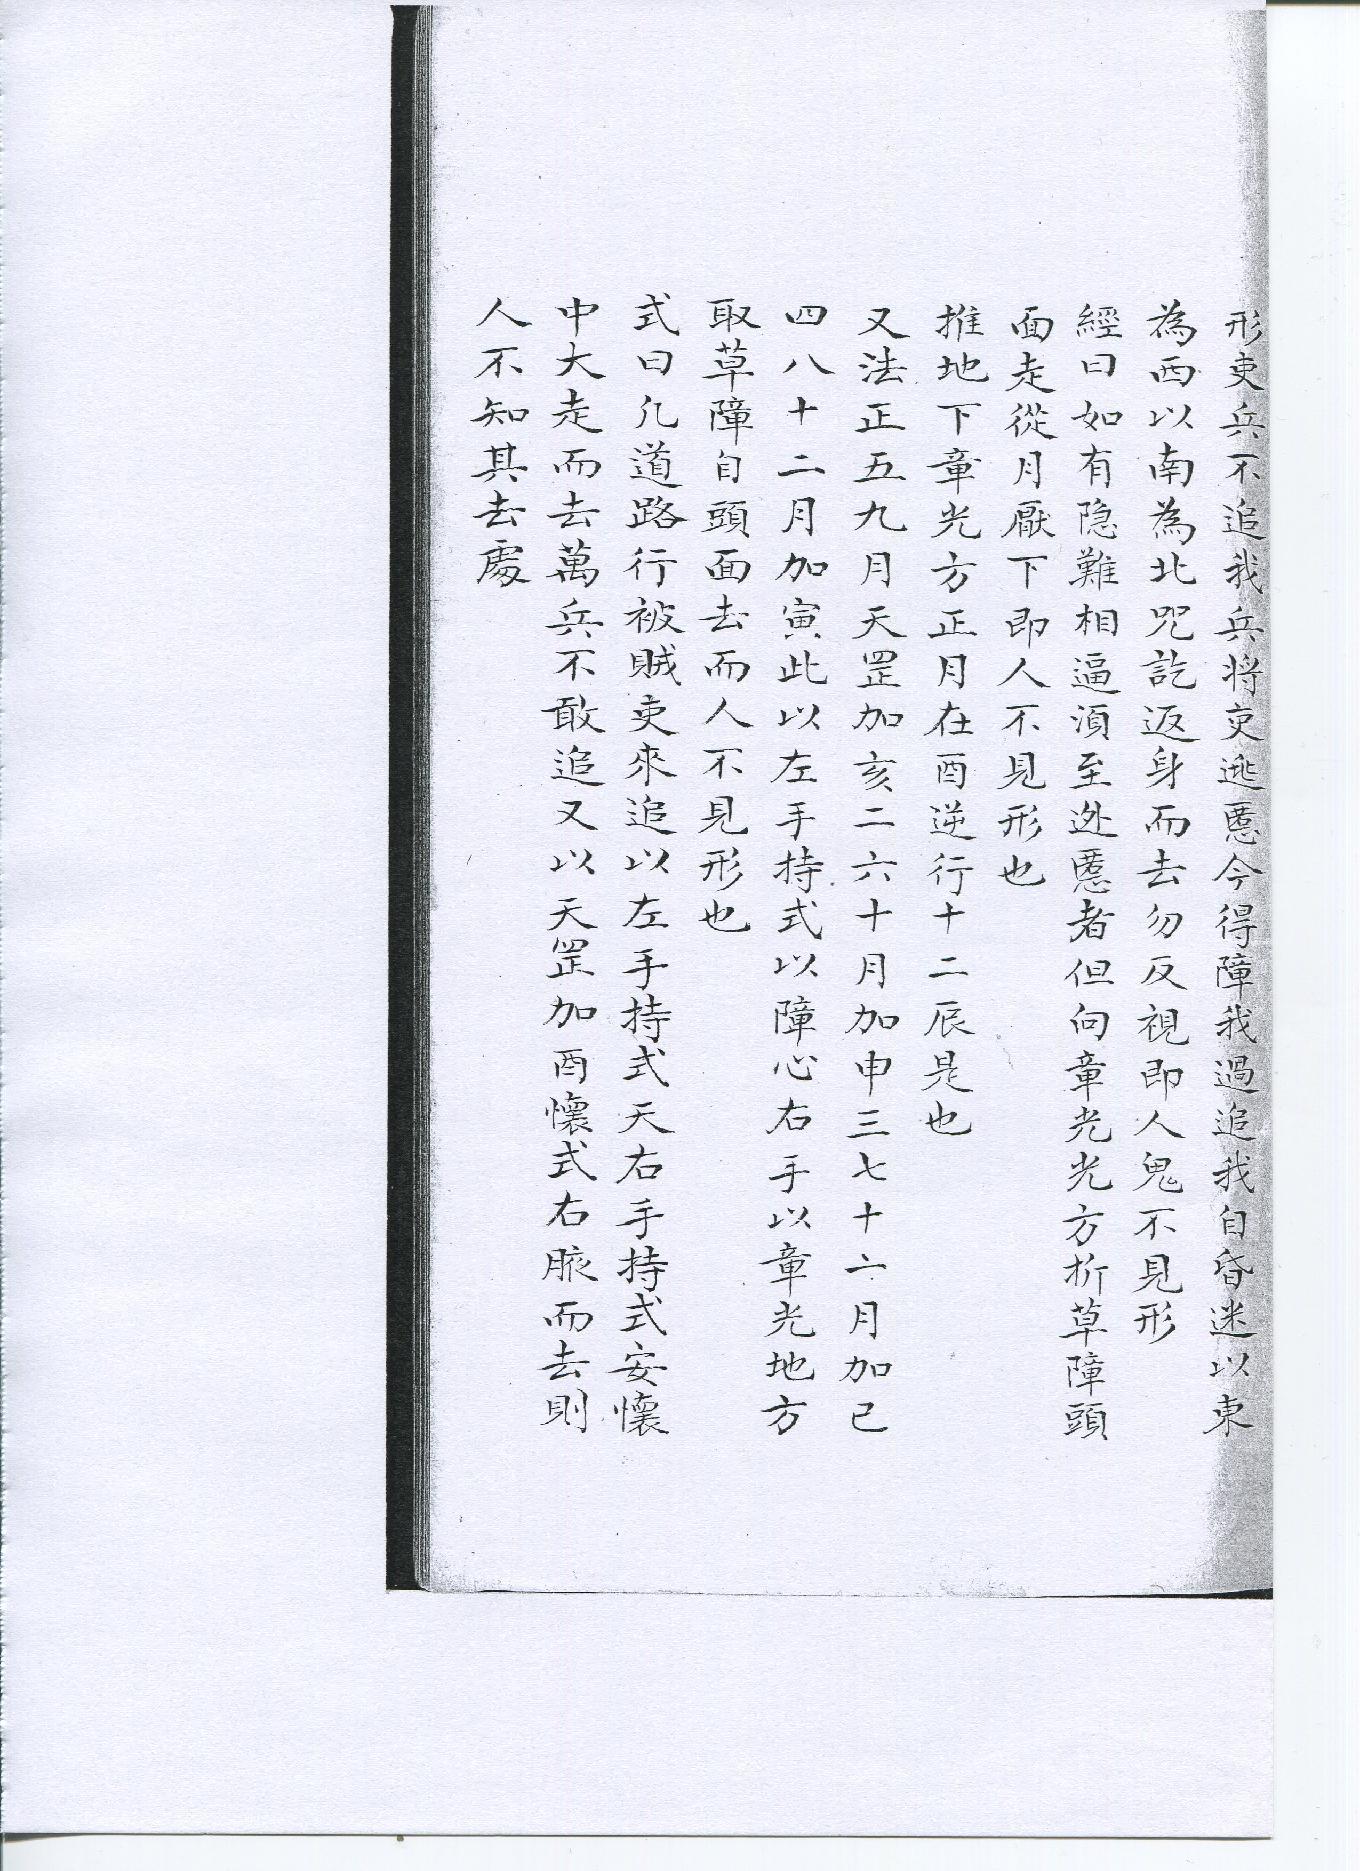 形吏兵不追我兵将吏逃慝今得障我過追我自昏迷以東
為西以南為北咒訖返身而去勿反視即人鬼不見形
經曰如有隐難相逼湏至迯慝者但向章光光方折草障頭
面走從月厭下即人不見形也
推地下章光方正月在酉逆行十二辰是也
又法正五九月天罡加亥二六十月加申三七十一月加已
四八十二月加寅此以左手持式以障心右手以章光地方
取草障自頭面去而人不見形也
式曰凡道路行被賊吏來追以左手持式天右手持式安懷
中大走而去萬兵不敢追又以天罡加酉懷式右腋而去則
人不知其去處